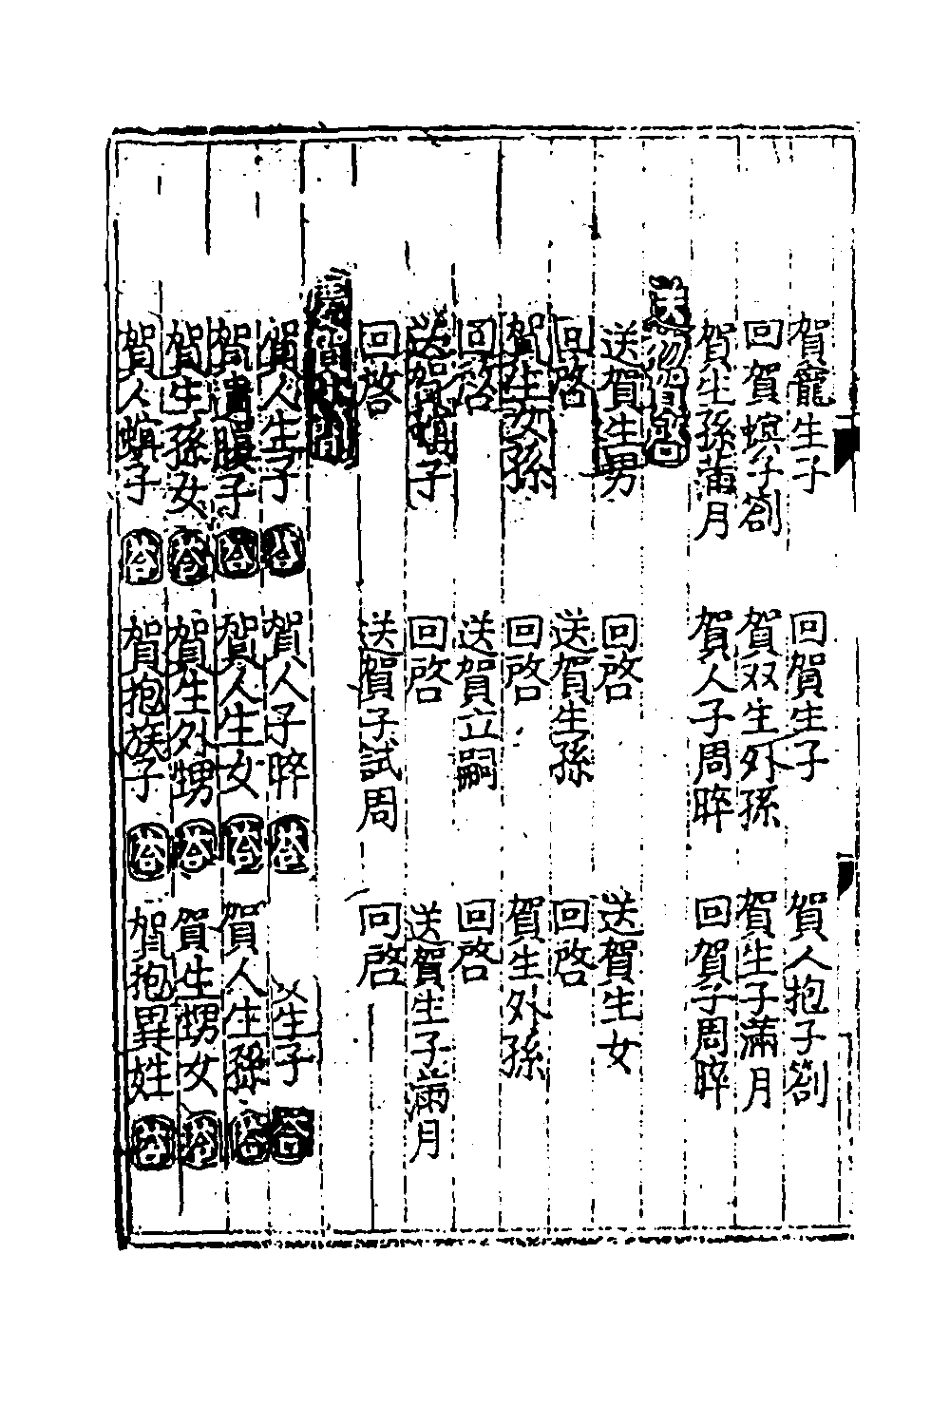 賀寵生子　回賀生子　賀人抱子劄
回賀螟子劄　賀双生外孫　賀生子滿月
賀生孫滿月　賀人子周晬　回賀子周晬
送物賀啓
送賀生男　回啓　送賀生女
回啓　送賀生孫　回啓
賀生女孫　回啓　賀生外孫
回啓　送賀立嗣　回啓
送賀螟子　回啓　送賀生子滿月
回啓　送賀子試周　回啓
賀人生子　荅　賀人子晬　荅　生子　荅
賀遺腹子　荅　賀人生女　荅　賀人生孫　荅
賀生孫女　荅　賀生外甥　荅　賀生甥女　荅
賀人螟子　荅　賀抱族子　荅　賀抱異姓　荅